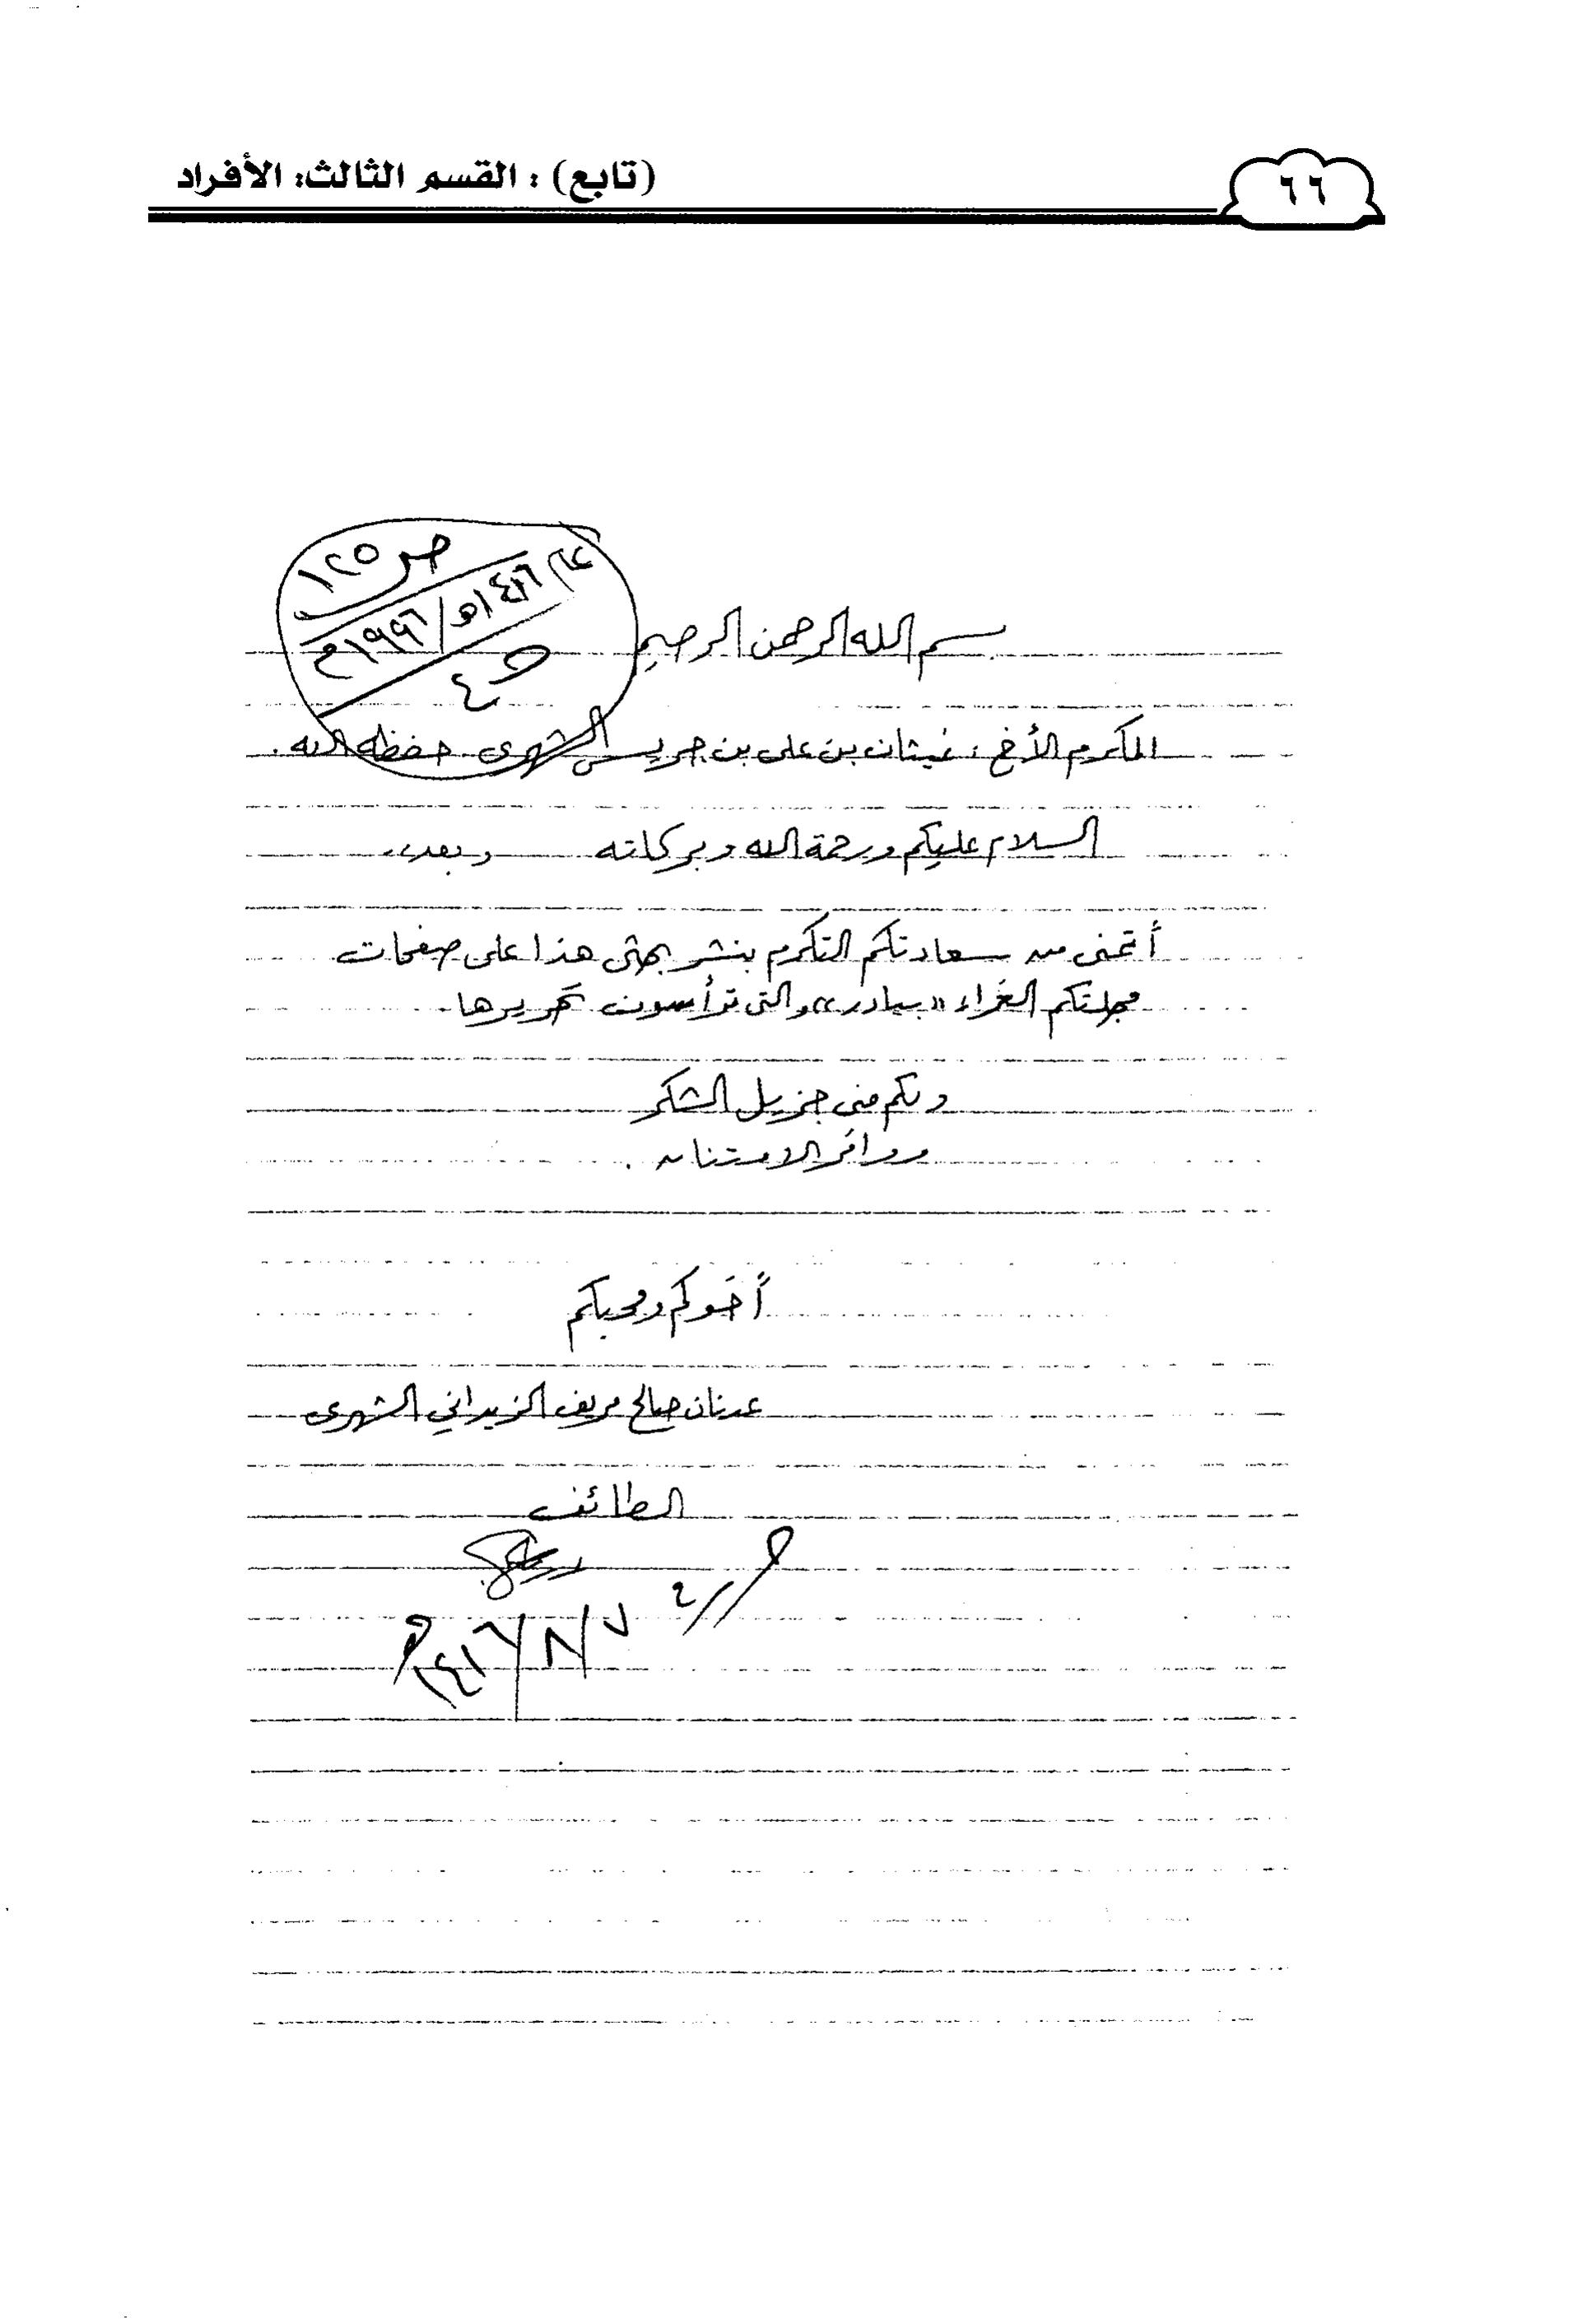 ٦٦
(تابع) : القسم الثالث: الأفراد
ص ١٢٥
١٤١٦هـ/١٩٩٦م
بسم الله الرحمن الرحيم
المكرم الأخ : غيثان بن علي بن جريس الشهري حفظه الله .
السلام عليكم ورحمة الله وبركاته وبعد،،
أتمنى من سعادتكم التكرم بنشر بحثي هذا على صفحات
مجلتكم الغراء «بيادر» والتي ترأسون تحريرها.
ولكم مني جزيل الشكر
ووافر الامتنان .
أخوكم ومحبكم
عدنان صالح مريف الزيداني الشهري
الطائف
٧/٨/١٤١٦هـ